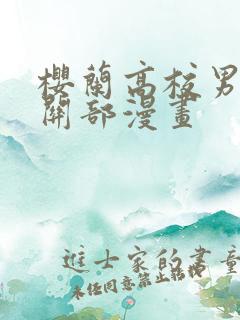 櫻蘭高校男
關部漫畫
進士家的書童
未經同意禁止轉載